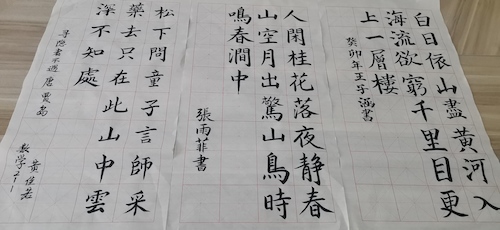 白日依山盡黃河入
海流欲窮千里目更
上一層樓
癸卯年王子涵書
人閑桂花落夜靜春
山空月出驚山鳥時
鳴春澗中
張雨菲書
松下問童子言師采
藥去只在此山中雲
深不知處
尋隱者不遇 唐 賈島